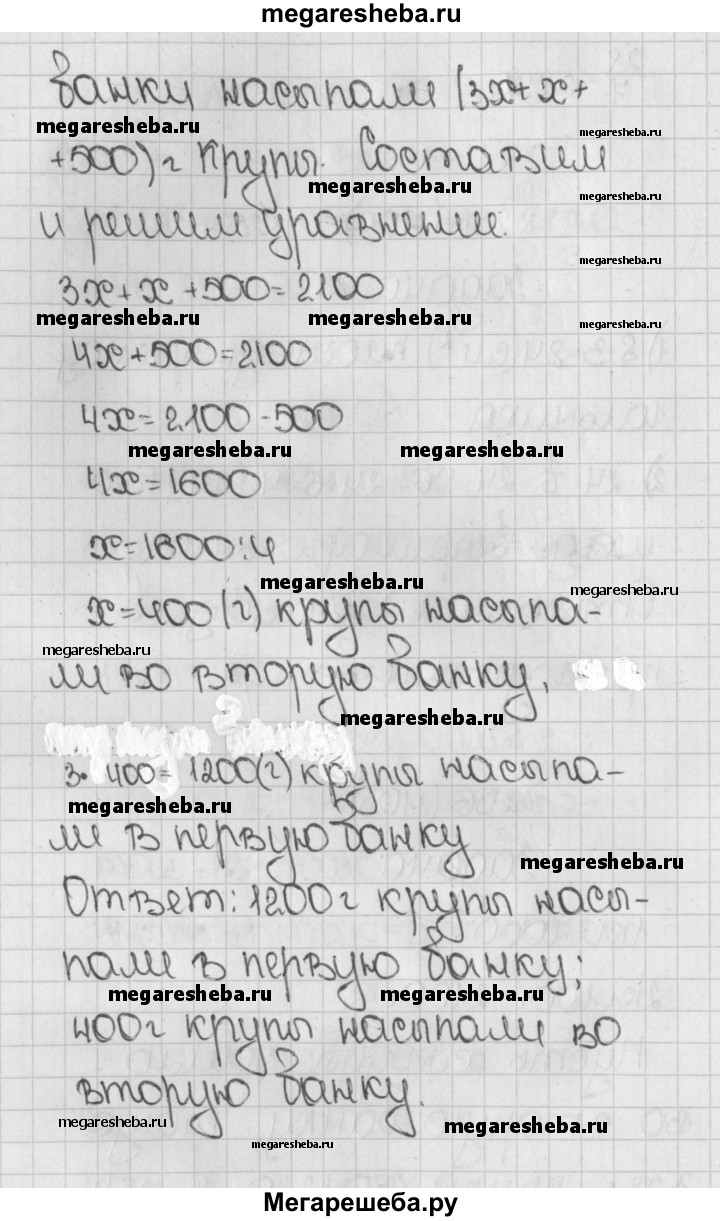 megaresheba.ru
банку насыпали (3x+x+
megaresheba.ru
megaresheba.ru
+500) г крупы. Составим
megaresheba.ru
и решим уравнение.
megaresheba.ru
3x+x+500=2100
megaresheba.ru
megaresheba.ru
megaresheba.ru
4x+500=2100
4x=2100-500
megaresheba.ru
megaresheba.ru
4x=1600
x=1600:4
megaresheba.ru
megaresheba.ru
x=400 (г) крупы насыпа-
megaresheba.ru
ли во вторую банку,
megaresheba.ru
3·400=1200(г) крупы насыпа-
megaresheba.ru
ли в первую банку
megaresheba.ru
Ответ: 1200г крупы насы-
пали в первую банку;
megaresheba.ru
megaresheba.ru
400г крупы насыпали во
вторую банку.
megaresheba.ru
megaresheba.ru
megaresheba.ru
Мегарешеба.ру